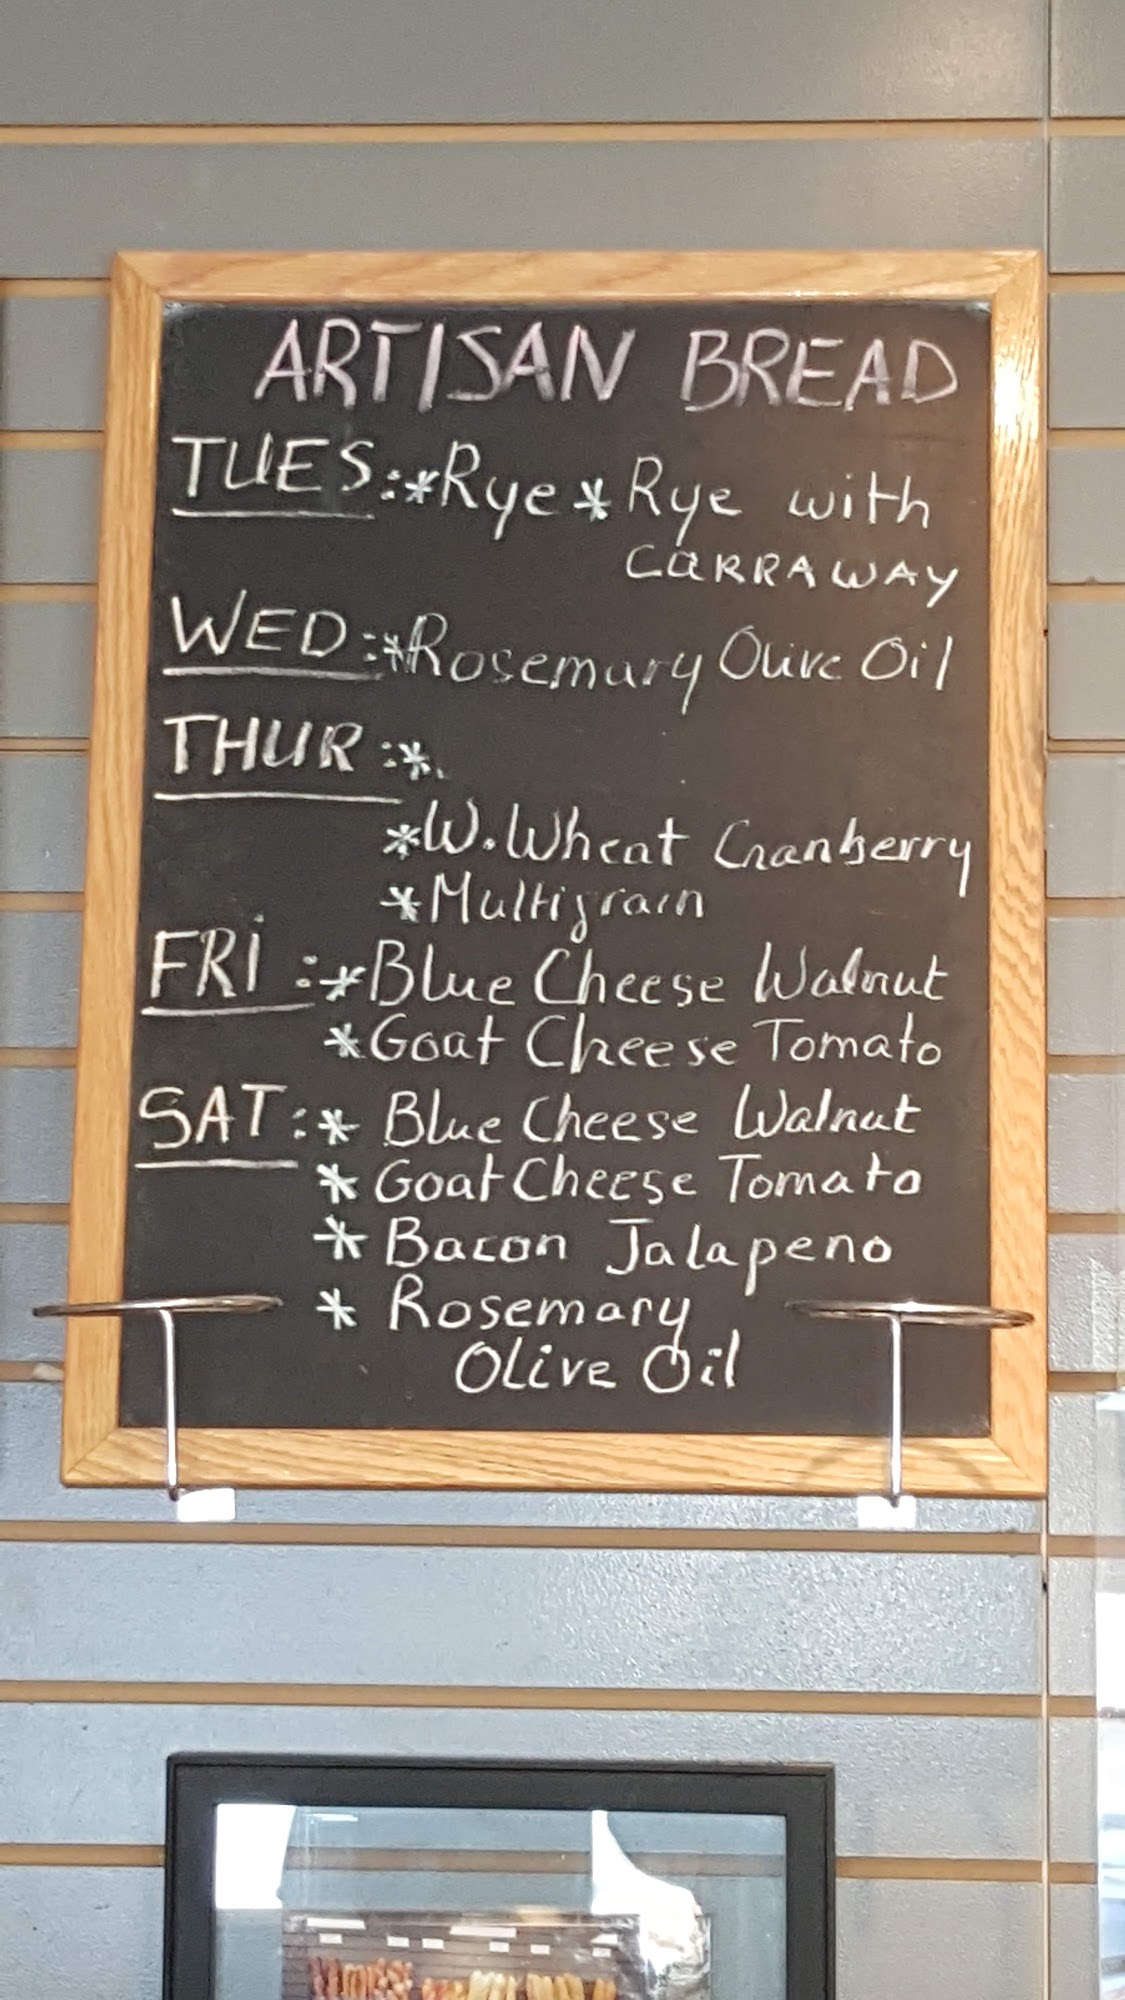 ARTISAN BREAD
TUES:*Rye *Rye with
CARRAWAY
WED:*Rosemary Olive Oil
THUR:*.
*W.Wheat Cranberry
*Multigrain
FRi:*Blue Cheese Walnut
*Goat Cheese Tomato
SAT:* Blue Cheese Walnut
* Goat Cheese Tomato
* Bacon Jalapeno
* Rosemary
Olive Oil